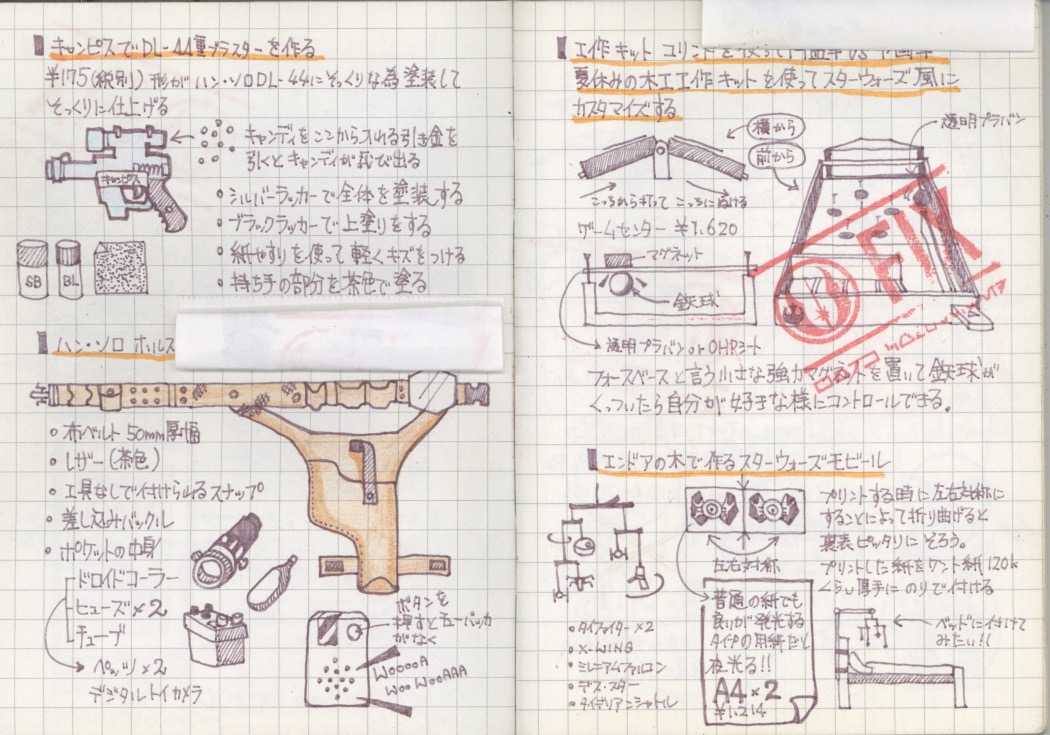 キャンピスでDL-44重ブラスターを作る
¥175(税別) 形がハン・ソロDL-44にそっくりな為塗装して
そっくりに仕上げる
キャンディをここから入れる引き金を
引くとキャンディが飛び出る
キャンピス
・シルバーラッカーで全体を塗装する
・ブラックラッカーで上塗りをする
・紙やすりを使って軽くキズをつける
・持ち手の部分を茶色で塗る
SB
BL
ハン・ソロ ホルス
・布ベルト 50mm厚幅
・レザー(茶色)
・工具なしで付けられるスナップ
・差し込みバックル
・ポケットの中身
ドロイドコーラー
ヒューズ×2
チューブ
ペッツ×2
デジタルトイカメラ
ボタンを
押すとチューバッカ
がなく
WOOOOA
WOO WOOAAA
工作キット コリントを使って
夏休みの木工工作キットを使ってスターウォーズ風に
カスタマイズする
横から
前から
透明プラバン
こっちから打って こっちにぬける
ゲームセンター ¥1.620
マグネット
鉄球
透明プラバン or OHPシート
FIN
フォースベースと言う小さな強力マグネットを置いて鉄球が
くっついたら自分が好きな様にコントロールできる。
エンドアの木で作るスターウォーズモビール
左右対称
プリントする時に左右対称に
することによって折り曲げると
裏表ピッタリにそろう。
プリントした紙をケント紙120k
くらい厚手にのりで付ける
普通の紙でも
良いが発光する
タイプの用紙だと
夜光る!!
A4×2
¥1.214
ベッドに付けて
みたい!!
・タイファイター×2
・X-WING
・ミレニアムファルコン
・デス・スター
・タイデリアンシャトル